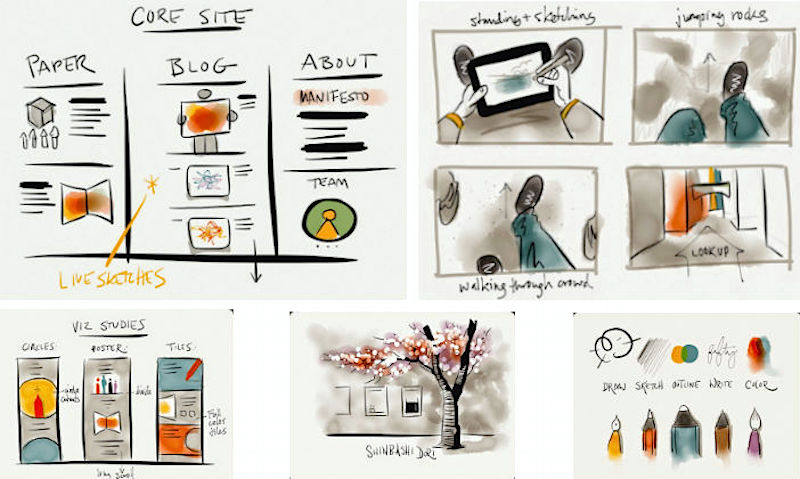 CORE SITE
PAPER
BLOG
ABOUT
MANIFESTO
TEAM
LIVE SKETCHES
standing + sketching
jumping rocks
walking through crowd
LOOK UP
VIZ STUDIES
CIRCLES:
POSTER:
TILES:
circle
divide
Full
color
tiles
long scroll
SHINBASHI DORI
DRAW SKETCH OUTLINE WRITE COLOR
fifty